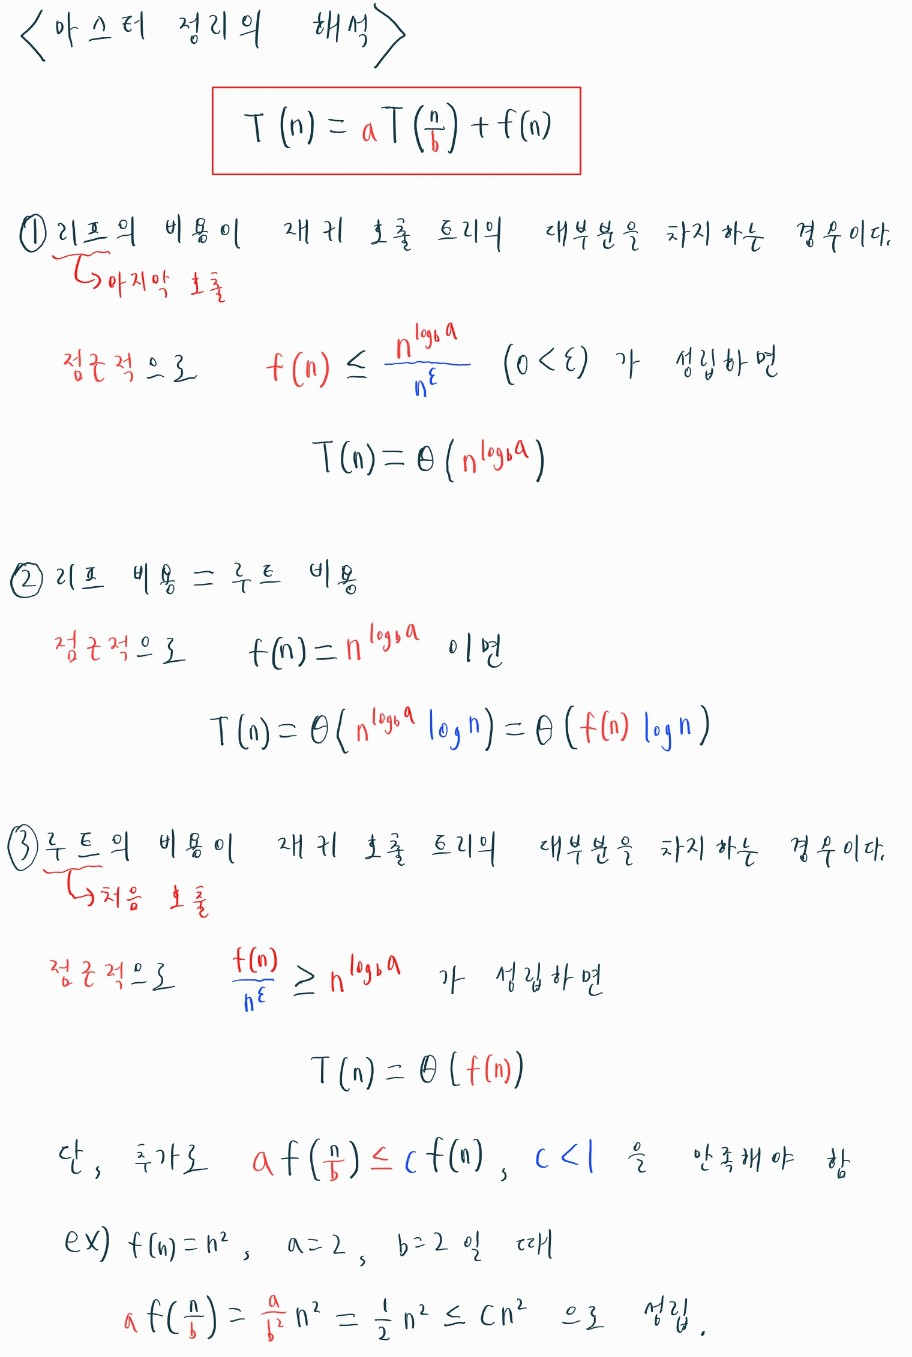 <마스터 정리의 해석>
T(n) = aT(n/b) + f(n)
① 리프의 비용이 재귀 호출 트리의 대부분을 차지하는 경우이다.
↳ 마지막 호출
점근적으로 f(n) ≤ n^(log_b a) / n^ε (0<ε) 가 성립하면
T(n) = θ(n^(log_b a))
② 리프 비용 = 루트 비용
점근적으로 f(n) = n^(log_b a) 이면
T(n) = θ(n^(log_b a) log n) = θ(f(n) log n)
③ 루트의 비용이 재귀 호출 트리의 대부분을 차지하는 경우이다.
↳ 처음 호출
점근적으로 f(n) / n^ε ≥ n^(log_b a) 가 성립하면
T(n) = θ(f(n))
단, 추가로 a f(n/b) ≤ c f(n), c<1 을 만족해야 함
ex) f(n) = n², a=2, b=2 일 때
a f(n/b) = a/b² n² = 1/2 n² ≤ cn² 으로 성립.